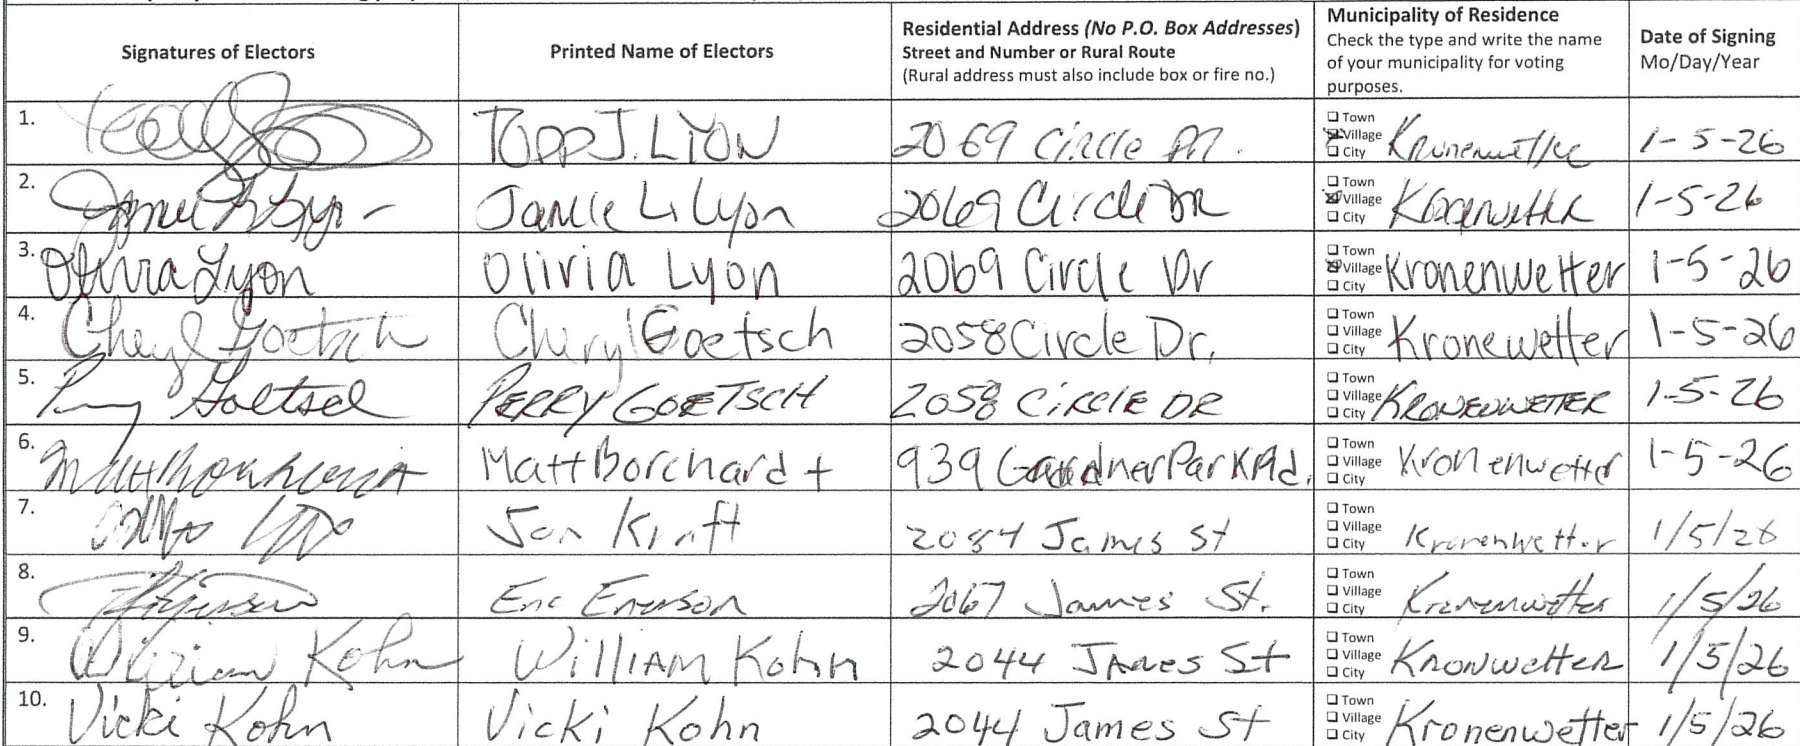 Signatures of Electors
Printed Name of Electors
Residential Address (No P.O. Box Addresses)
Street and Number or Rural Route
(Rural address must also include box or fire no.)
Municipality of Residence
Check the type and write the name
of your municipality for voting
purposes.
Date of Signing
Mo/Day/Year
1. TODD J. LYON 2069 Circle DR. Town Village City Kronenwetter 1-5-26
2. Jamie L. Lyon 2069 Circle DR Town Village City Kronenwetter 1-5-26
3. Olivia Lyon Olivia Lyon 2069 Circle Dr Town Village City Kronenwetter 1-5-26
4. Cheryl Goetsch Cheryl Goetsch 2058 Circle Dr. Town Village City Kronewetter 1-5-26
5. Perry Goetsch PERRY GOETSCH 2058 CIRCLE DR Town Village City KRONENWETTER 1-5-26
6. Matt Borchardt 939 Gardner Park Rd. Town Village City Kronenwetter 1-5-26
7. Jon Kraft 2084 James St Town Village City Kronenwetter 1/5/26
8. Eric Enerson 2067 James St. Town Village City Kronenwetter 1/5/26
9. William Kohn William Kohn 2044 James St Town Village City Kronwetter 1/5/26
10. Vicki Kohn Vicki Kohn 2044 James St Town Village City Kronenwetter 1/5/26